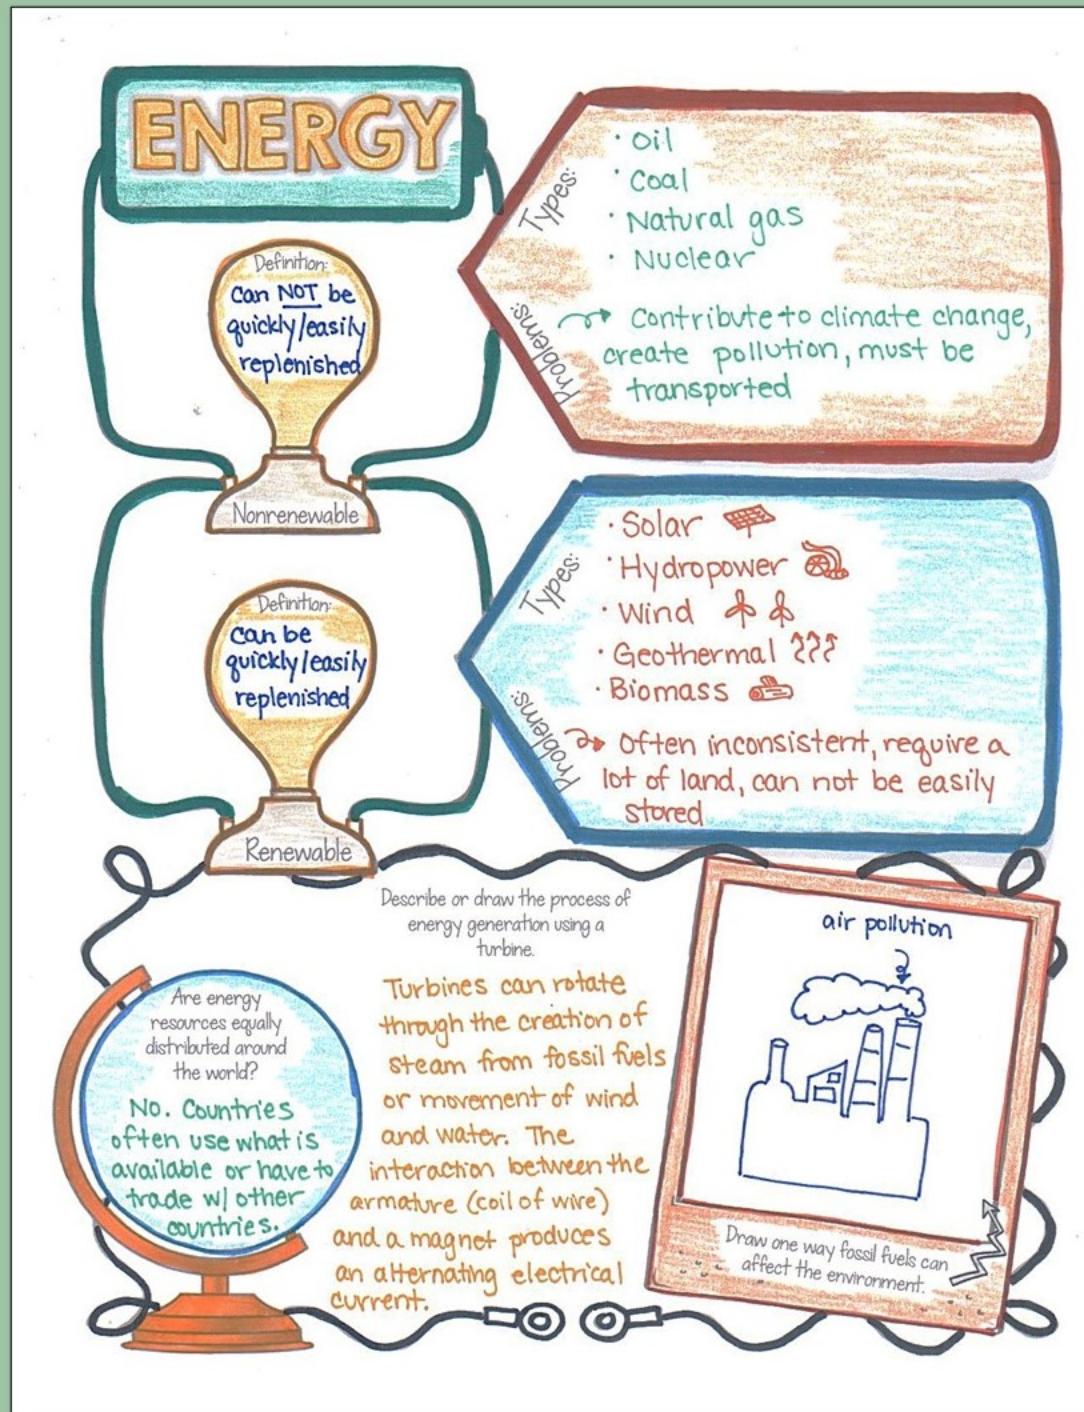 ENERGY
Definition:
Can NOT be
quickly/easily
replenished
Nonrenewable
Types:
· Oil
· Coal
· Natural gas
· Nuclear
Problems:
Contribute to climate change,
create pollution, must be
transported
Definition:
Can be
quickly/easily
replenished
Renewable
Types:
· Solar
· Hydropower
· Wind
· Geothermal
· Biomass
Problems:
Often inconsistent, require a
lot of land, can not be easily
stored
Are energy
resources equally
distributed around
the world?
No. Countries
often use what is
available or have to
trade w/ other
countries.
Describe or draw the process of
energy generation using a
turbine.
Turbines can rotate
through the creation of
steam from fossil fuels
or movement of wind
and water. The
interaction between the
armature (coil of wire)
and a magnet produces
an alternating electrical
current.
air pollution
Draw one way fossil fuels can
affect the environment.